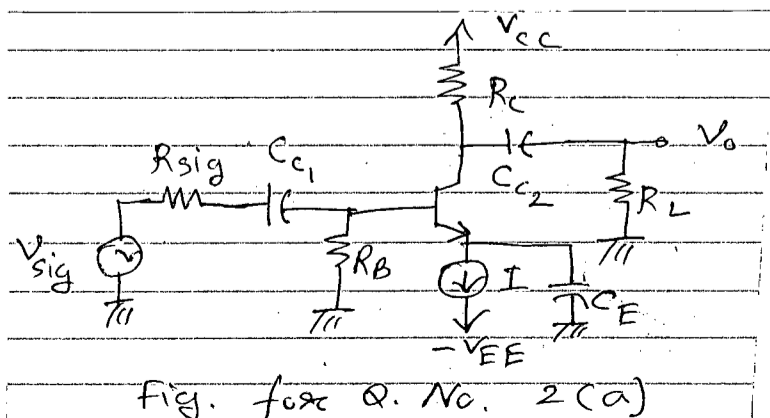 V_CC
R_C
V_o
R_sig
C_C1
C_C2
R_L
V_sig
R_B
I
C_E
-V_EE
Fig. for Q. No. 2(a)